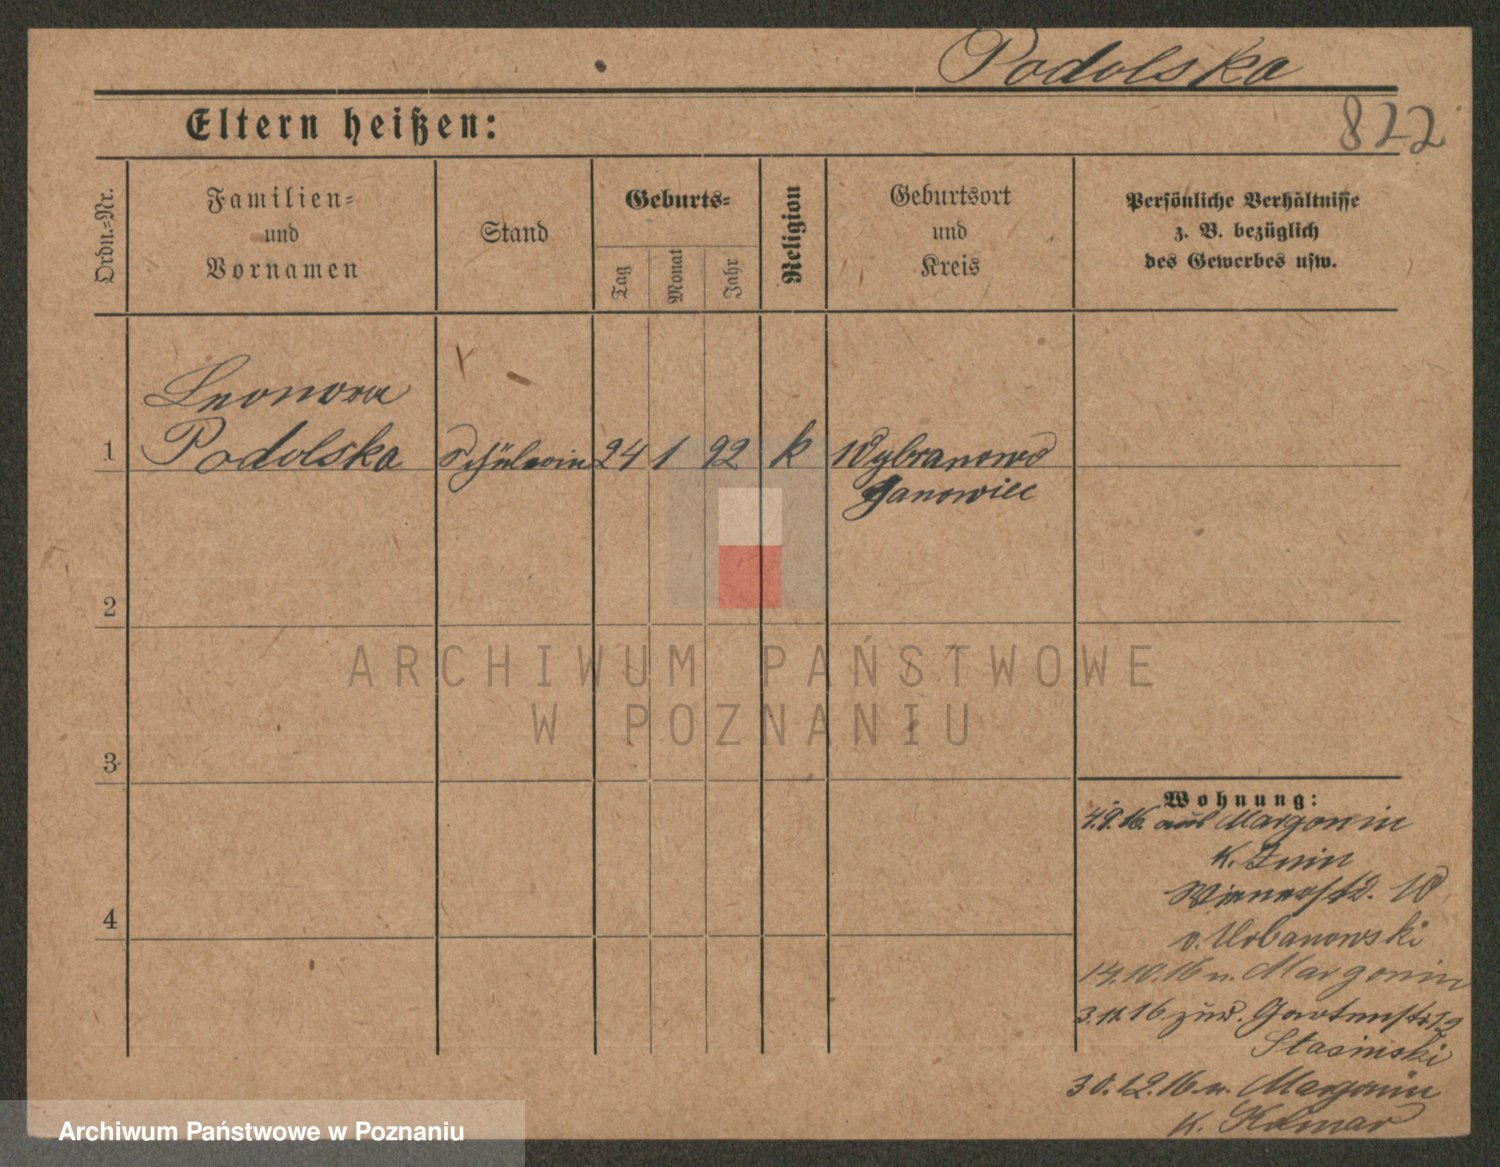 Podolska
822
Eltern heißen:
Ordn.-Nr.
Familien-
und
Vornamen
Stand
Geburts-
Tag
Monat
Jahr
Religion
Geburtsort
und
Kreis
Persönliche Verhältnisse
z. B. bezüglich
des Gewerbes usw.
Leonora
1 Podolska Schülerin 24 1 92 k Wybranowo
Janowiec
2
3
4
Wohnung:
4.9.16. aus Margonin
K. Znin
Wienerstr. 10
v. Urbanowski
14.10.16 n. Margonin
3.11.16 zur. Gartenstr. 12
Stasinski
30.12.16 n. Margonin
K. Kolmar
ARCHIWUM PAŃSTWOWE
W POZNANIU
Archiwum Państwowe w Poznaniu